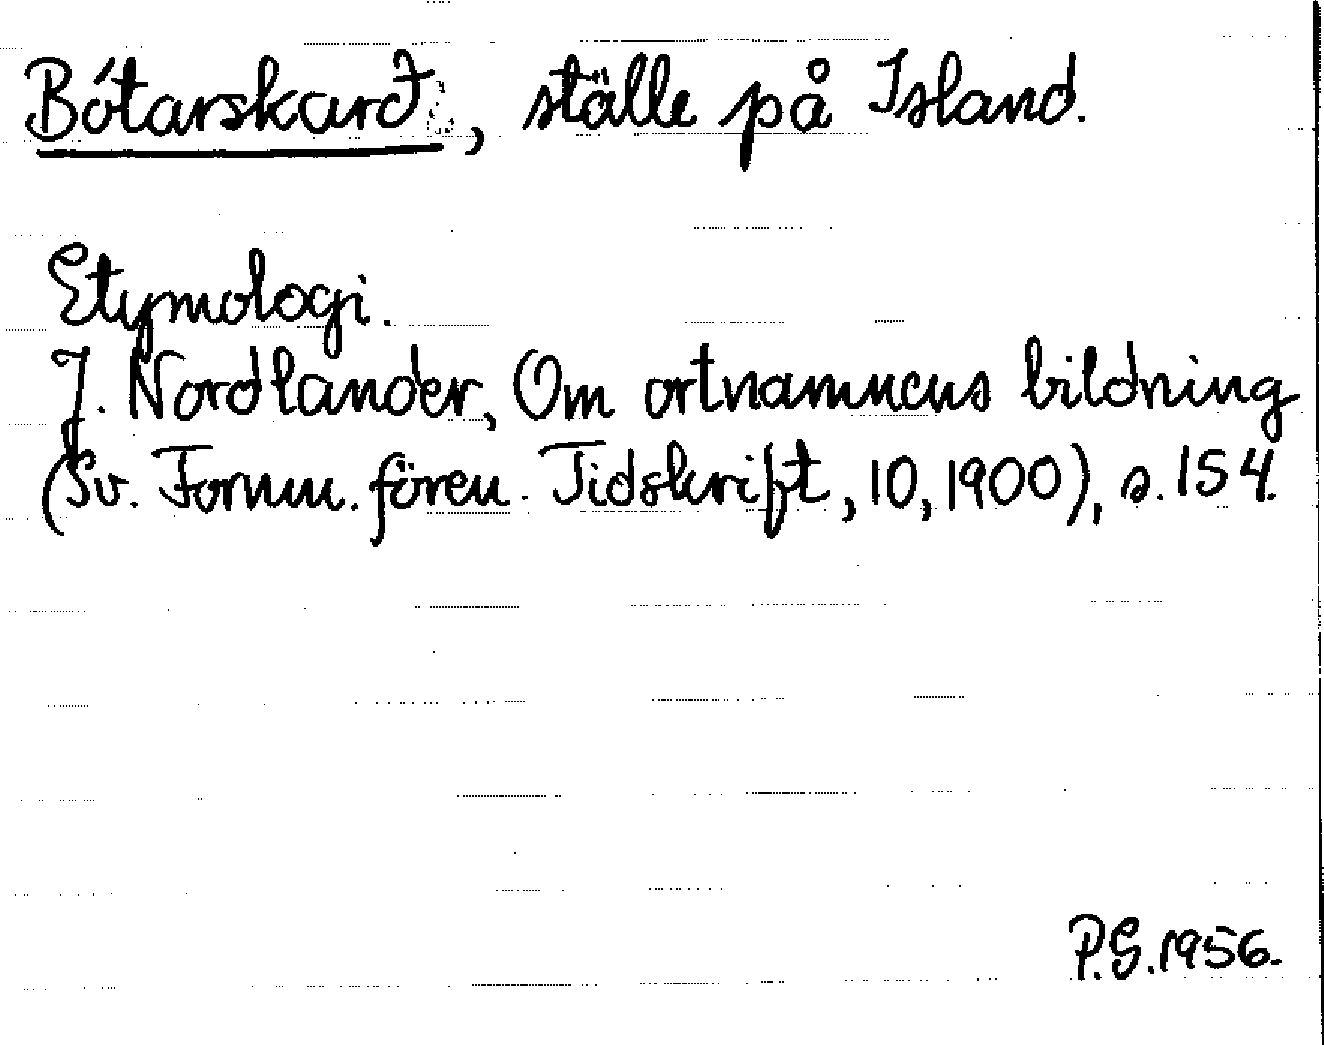 Bótarskarð, ställe på Island.
Etymologi.
J. Nordlander, Om ortnamnens bildning
(Sv. Fornm. fören. Tidskrift, 10, 1900), s. 154.
P.G. 1956.